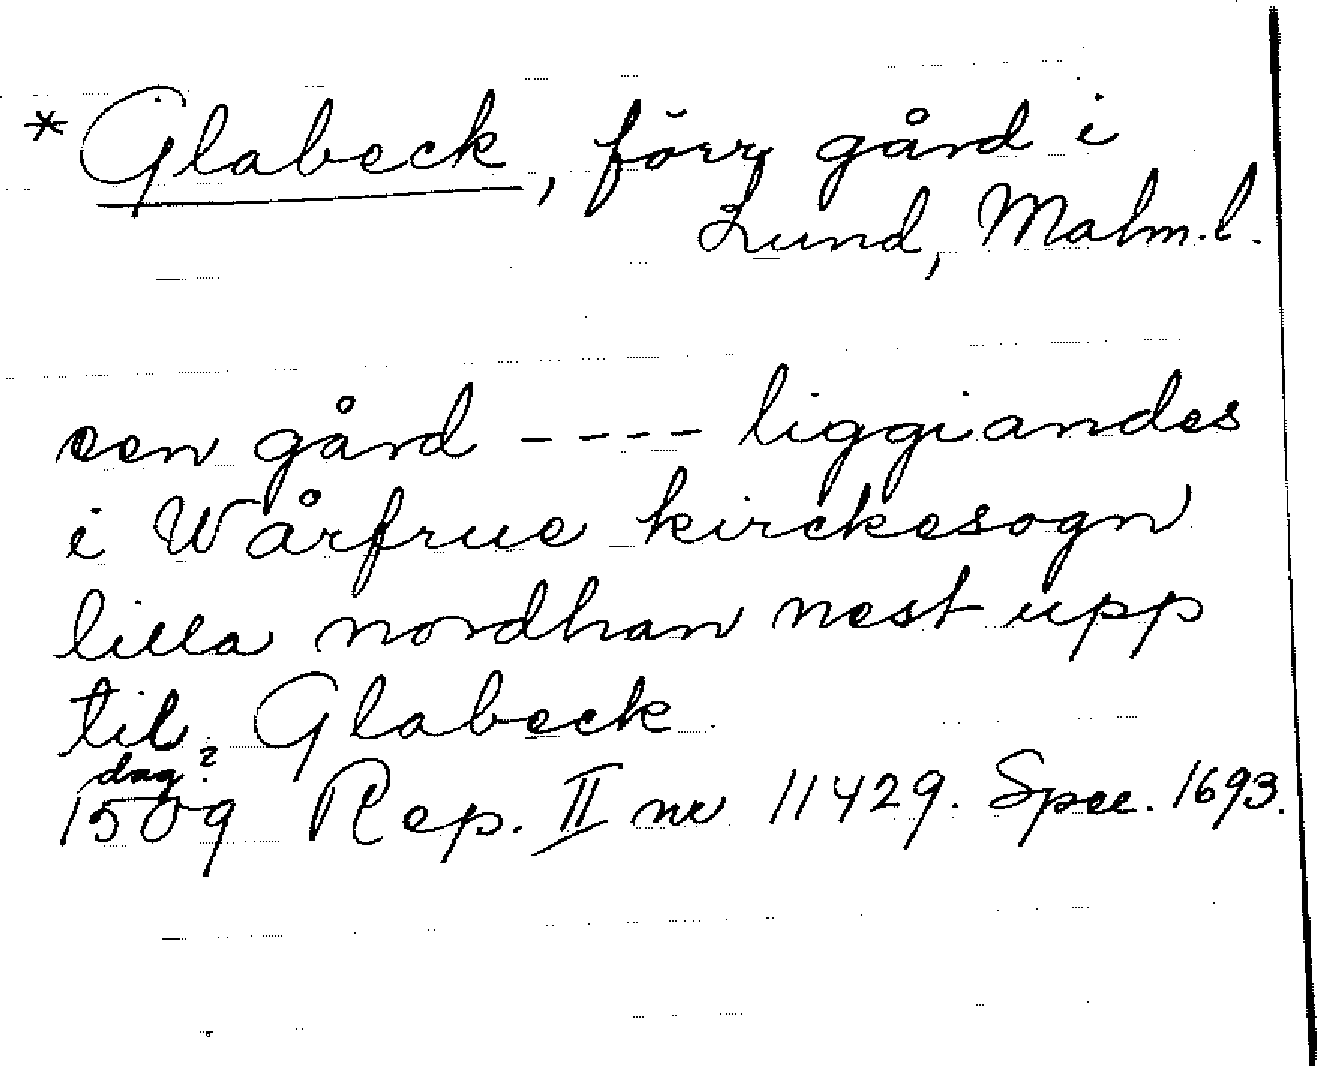 * Glabeck, förr gård i
Lund, Malm.l.
een gård ---- liggiandes
i Wårfrue kirckesogn
lilla nordhan nest upp
til Glabeck
dag?
1509 Rep. II nr 11429. Spec. 1693.